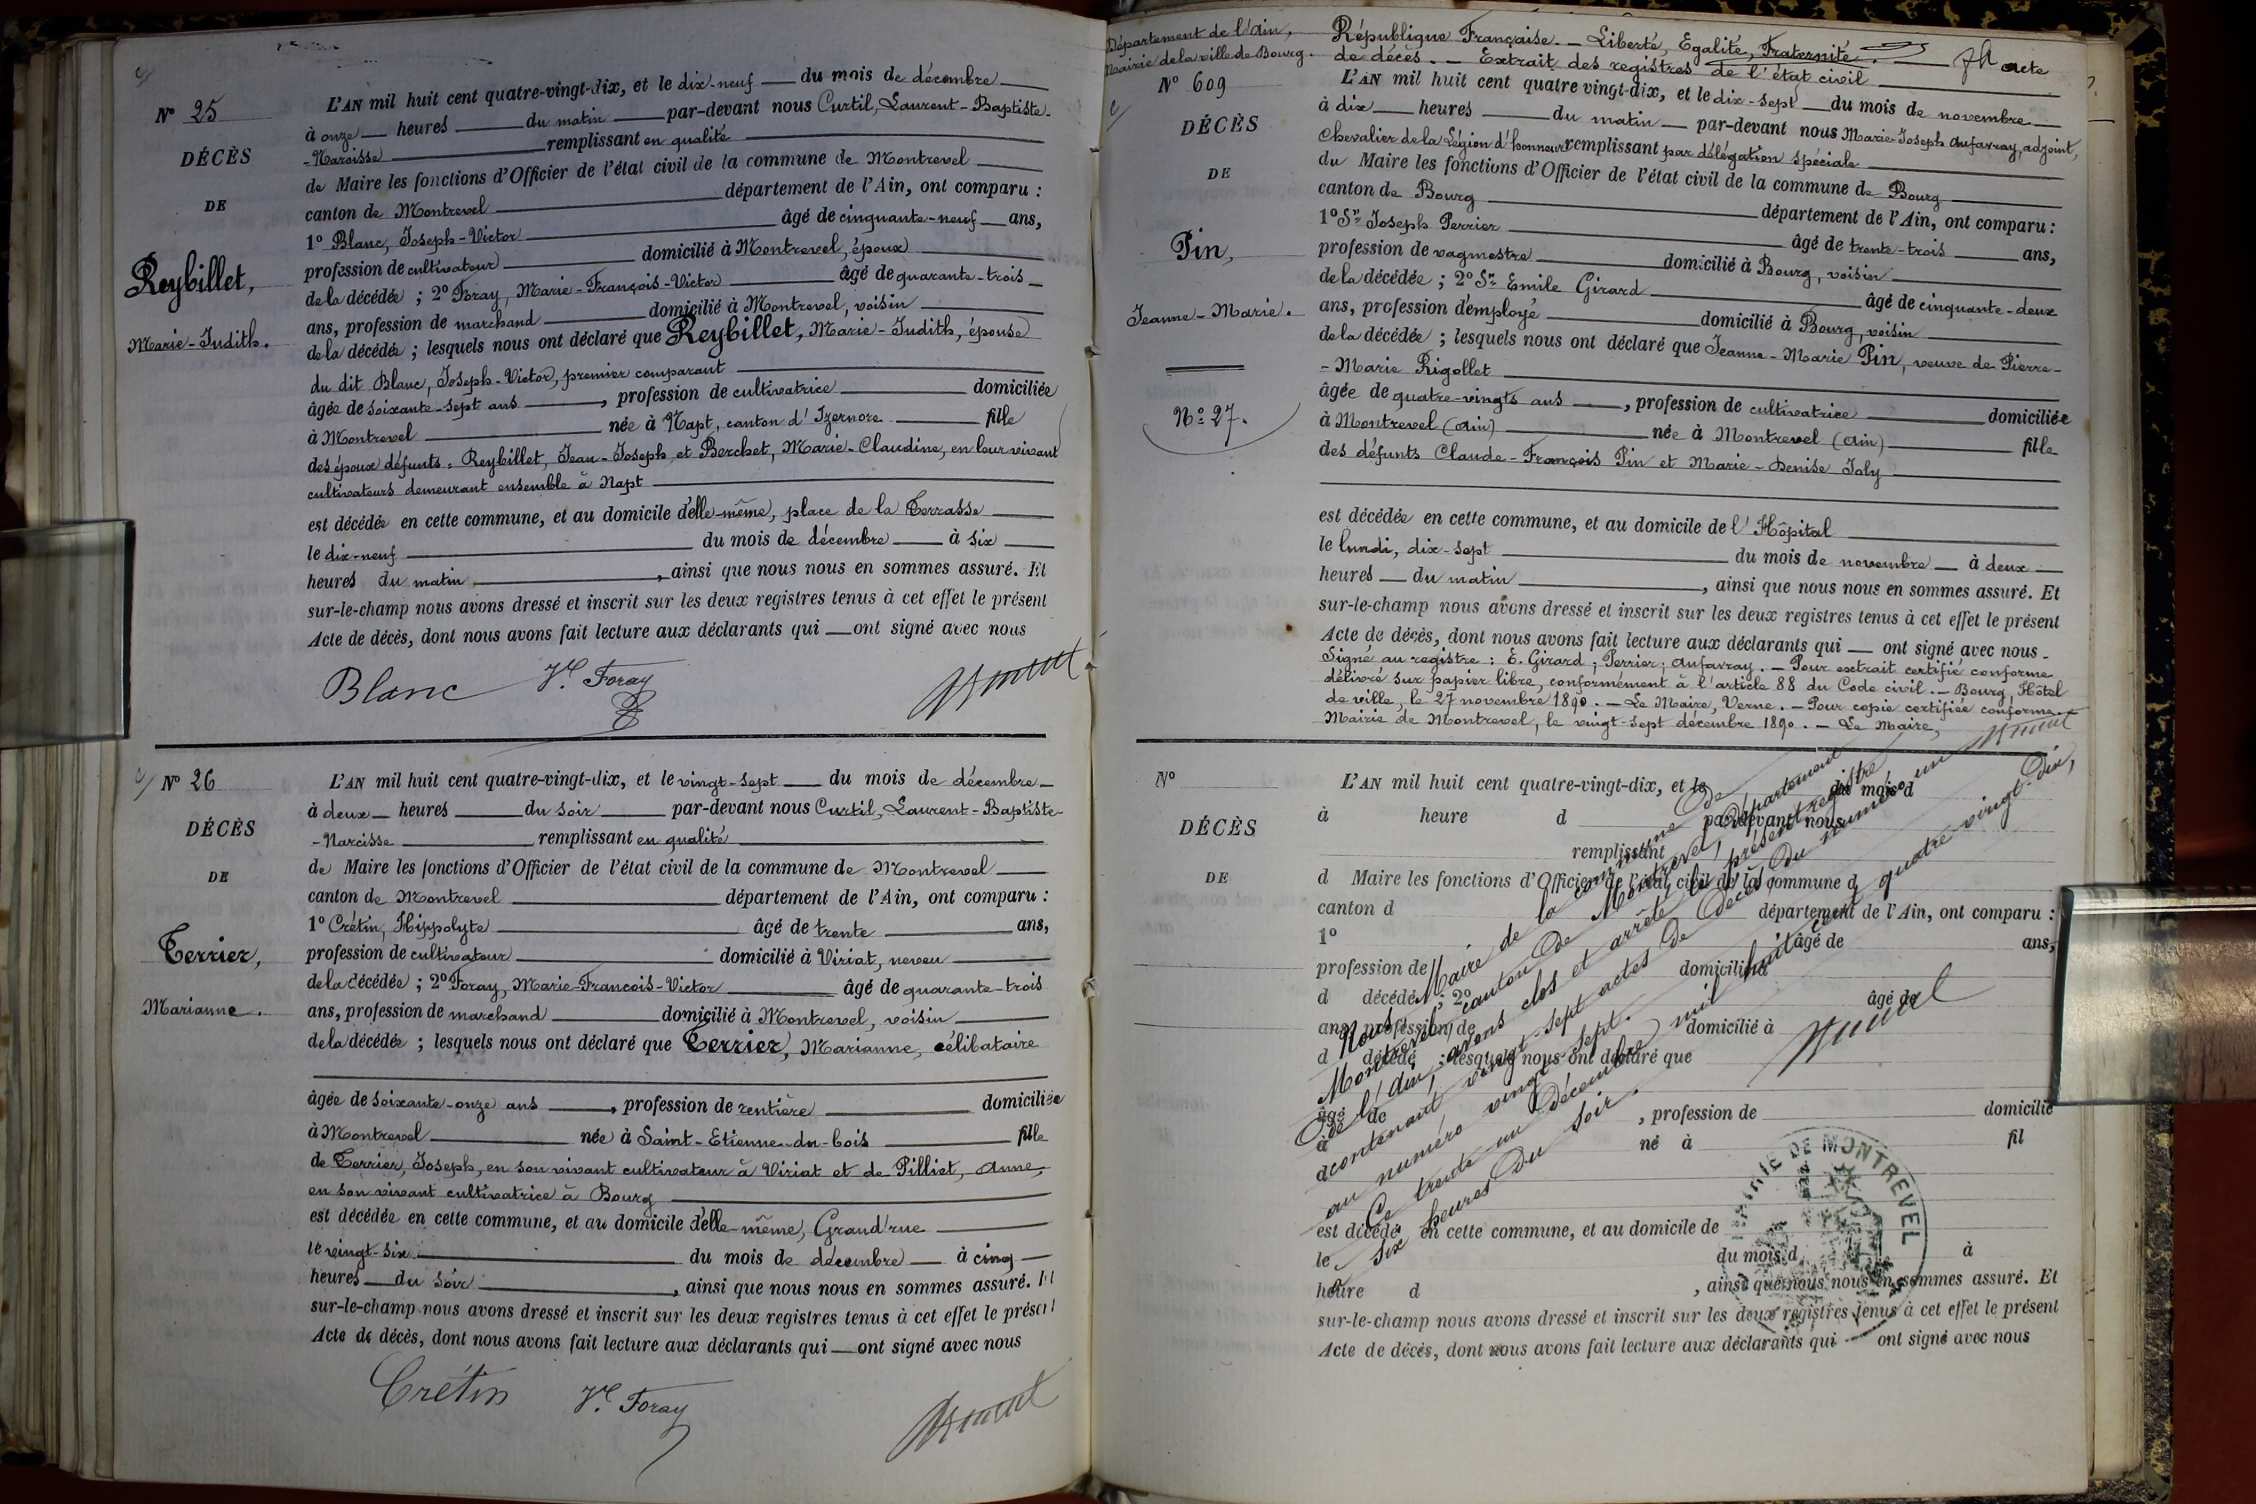 Nº 25
DÉCÈS
DE
Reybillet,
Marie-Judith.
L'AN mil huit cent quatre-vingt-dix, et le dix-neuf du mois de décembre
à onze heures du matin par-devant nous Curtil, Laurent-Baptiste-
-Narcisse remplissant en qualité
de Maire les fonctions d'Officier de l'état civil de la commune de Montrevel
canton de Montrevel département de l'Ain, ont comparu :
1º Blanc, Joseph-Victor âgé de cinquante-neuf ans,
profession de cultivateur domicilié à Montrevel, époux
de la décédée ; 2º Foray, Marie-François-Victor âgé de quarante-trois
ans, profession de marchand domicilié à Montrevel, voisin
de la décédée ; lesquels nous ont déclaré que Reybillet, Marie-Judith, épouse
du dit Blanc, Joseph-Victor, premier comparant
âgée de soixante-sept ans , profession de cultivatrice domiciliée
à Montrevel née à Napt, canton d'Izernore fille
des époux défunts : Reybillet, Jean-Joseph et Berchet, Marie-Claudine, en leur vivant
cultivateurs demeurant ensemble à Napt
est décédée en cette commune, et au domicile d'elle-même, place de la Terrasse
le dix-neuf du mois de décembre à six
heures du matin , ainsi que nous nous en sommes assuré. Et
sur-le-champ nous avons dressé et inscrit sur les deux registres tenus à cet effet le présent
Acte de décès, dont nous avons fait lecture aux déclarants qui ont signé avec nous
Blanc Vr. Foray
Nº 26
DÉCÈS
DE
Terrier,
Marianne.
L'AN mil huit cent quatre-vingt-dix, et le vingt-sept du mois de décembre
à deux heures du soir par-devant nous Curtil, Laurent-Baptiste-
-Narcisse remplissant en qualité
de Maire les fonctions d'Officier de l'état civil de la commune de Montrevel
canton de Montrevel département de l'Ain, ont comparu :
1º Crétin, Hippolyte âgé de trente ans,
profession de cultivateur domicilié à Viriat, neveu
de la décédée ; 2º Foray, Marie-François-Victor âgé de quarante-trois
ans, profession de marchand domicilié à Montrevel, voisin
de la décédée ; lesquels nous ont déclaré que Terrier, Marianne, célibataire
âgée de soixante-onze ans , profession de rentière domiciliée
à Montrevel née à Saint-Etienne-du-bois fille
de Terrier, Joseph, en son vivant cultivateur à Viriat et de Pilliet, Anne,
en son vivant cultivatrice à Bourg
est décédée en cette commune, et au domicile d'elle-même, Grand'rue
le vingt-six du mois de décembre à cinq
heures du soir , ainsi que nous nous en sommes assuré. Et
sur-le-champ nous avons dressé et inscrit sur les deux registres tenus à cet effet le présent
Acte de décès, dont nous avons fait lecture aux déclarants qui ont signé avec nous
Crétin Vr. Foray
Département de l'Ain,
Mairie de la ville de Bourg.
République Française. - Liberté, Egalité, Fraternité. acte
de décès. - Extrait des registres de l'état civil
Nº 609
DÉCÈS
DE
Pin,
Jeanne-Marie.
Nº 27.
L'AN mil huit cent quatre vingt-dix, et le dix-sept du mois de novembre
à dix heures du matin par-devant nous Marie-Joseph Aufavray, adjoint,
Chevalier de la Légion d'honneur remplissant par délégation spéciale
du Maire les fonctions d'Officier de l'état civil de la commune de Bourg
canton de Bourg département de l'Ain, ont comparu :
1º Sr Joseph Perrier âgé de trente-trois ans,
profession de vagmestre domicilié à Bourg, voisin
de la décédée ; 2º Sr Emile Girard âgé de cinquante-deux
ans, profession d'employé domicilié à Bourg, voisin
de la décédée ; lesquels nous ont déclaré que Jeanne-Marie Pin, veuve de Pierre-
-Marie Rigollet
âgée de quatre-vingts ans , profession de cultivatrice domiciliée
à Montrevel (Ain) née à Montrevel (Ain) fille
des défunts Claude-François Pin et Marie-Denise Joly
est décédée en cette commune, et au domicile de l'Hôpital
le lundi, dix-sept du mois de novembre à deux
heures du matin , ainsi que nous nous en sommes assuré. Et
sur-le-champ nous avons dressé et inscrit sur les deux registres tenus à cet effet le présent
Acte de décès, dont nous avons fait lecture aux déclarants qui ont signé avec nous.
Signé au registre : E. Girard ; Perrier ; Aufavray. - Pour extrait certifié conforme
délivré sur papier libre, conformément à l'article 88 du Code civil. - Bourg, Hôtel
de ville, le 27 novembre 1890. - Le Maire, Verne. - Pour copie certifiée conforme
Mairie de Montrevel, le vingt-sept décembre 1890. - Le Maire,
Nº
DÉCÈS
DE
L'AN mil huit cent quatre-vingt-dix, et le du mois d
à heure d par-devant nous
remplissant
d Maire les fonctions d'Officier de l'état civil de la commune d
canton d département de l'Ain, ont comparu :
1º âgé de ans,
profession de domicilié à
d décédé ; 2º âgé de
ans, profession de domicilié à
d décédé ; lesquels nous ont déclaré que
âgé de , profession de domicilié
à né à fil
d
est décédé en cette commune, et au domicile de
le du mois d à
heure d , ainsi que nous nous en sommes assuré. Et
sur-le-champ nous avons dressé et inscrit sur les deux registres tenus à cet effet le présent
Acte de décès, dont nous avons fait lecture aux déclarants qui ont signé avec nous
Nous, Maire de la commune de
Montrevel, canton de Montrevel, département
de l'Ain, avons clos et arrêté le présent registre
contenant vingt-sept actes de décès du numéro un
au numéro vingt-sept.
Ce trente-un décembre mil huit cent quatre-vingt-dix,
à six heures du soir.
MAIRIE DE MONTREVEL